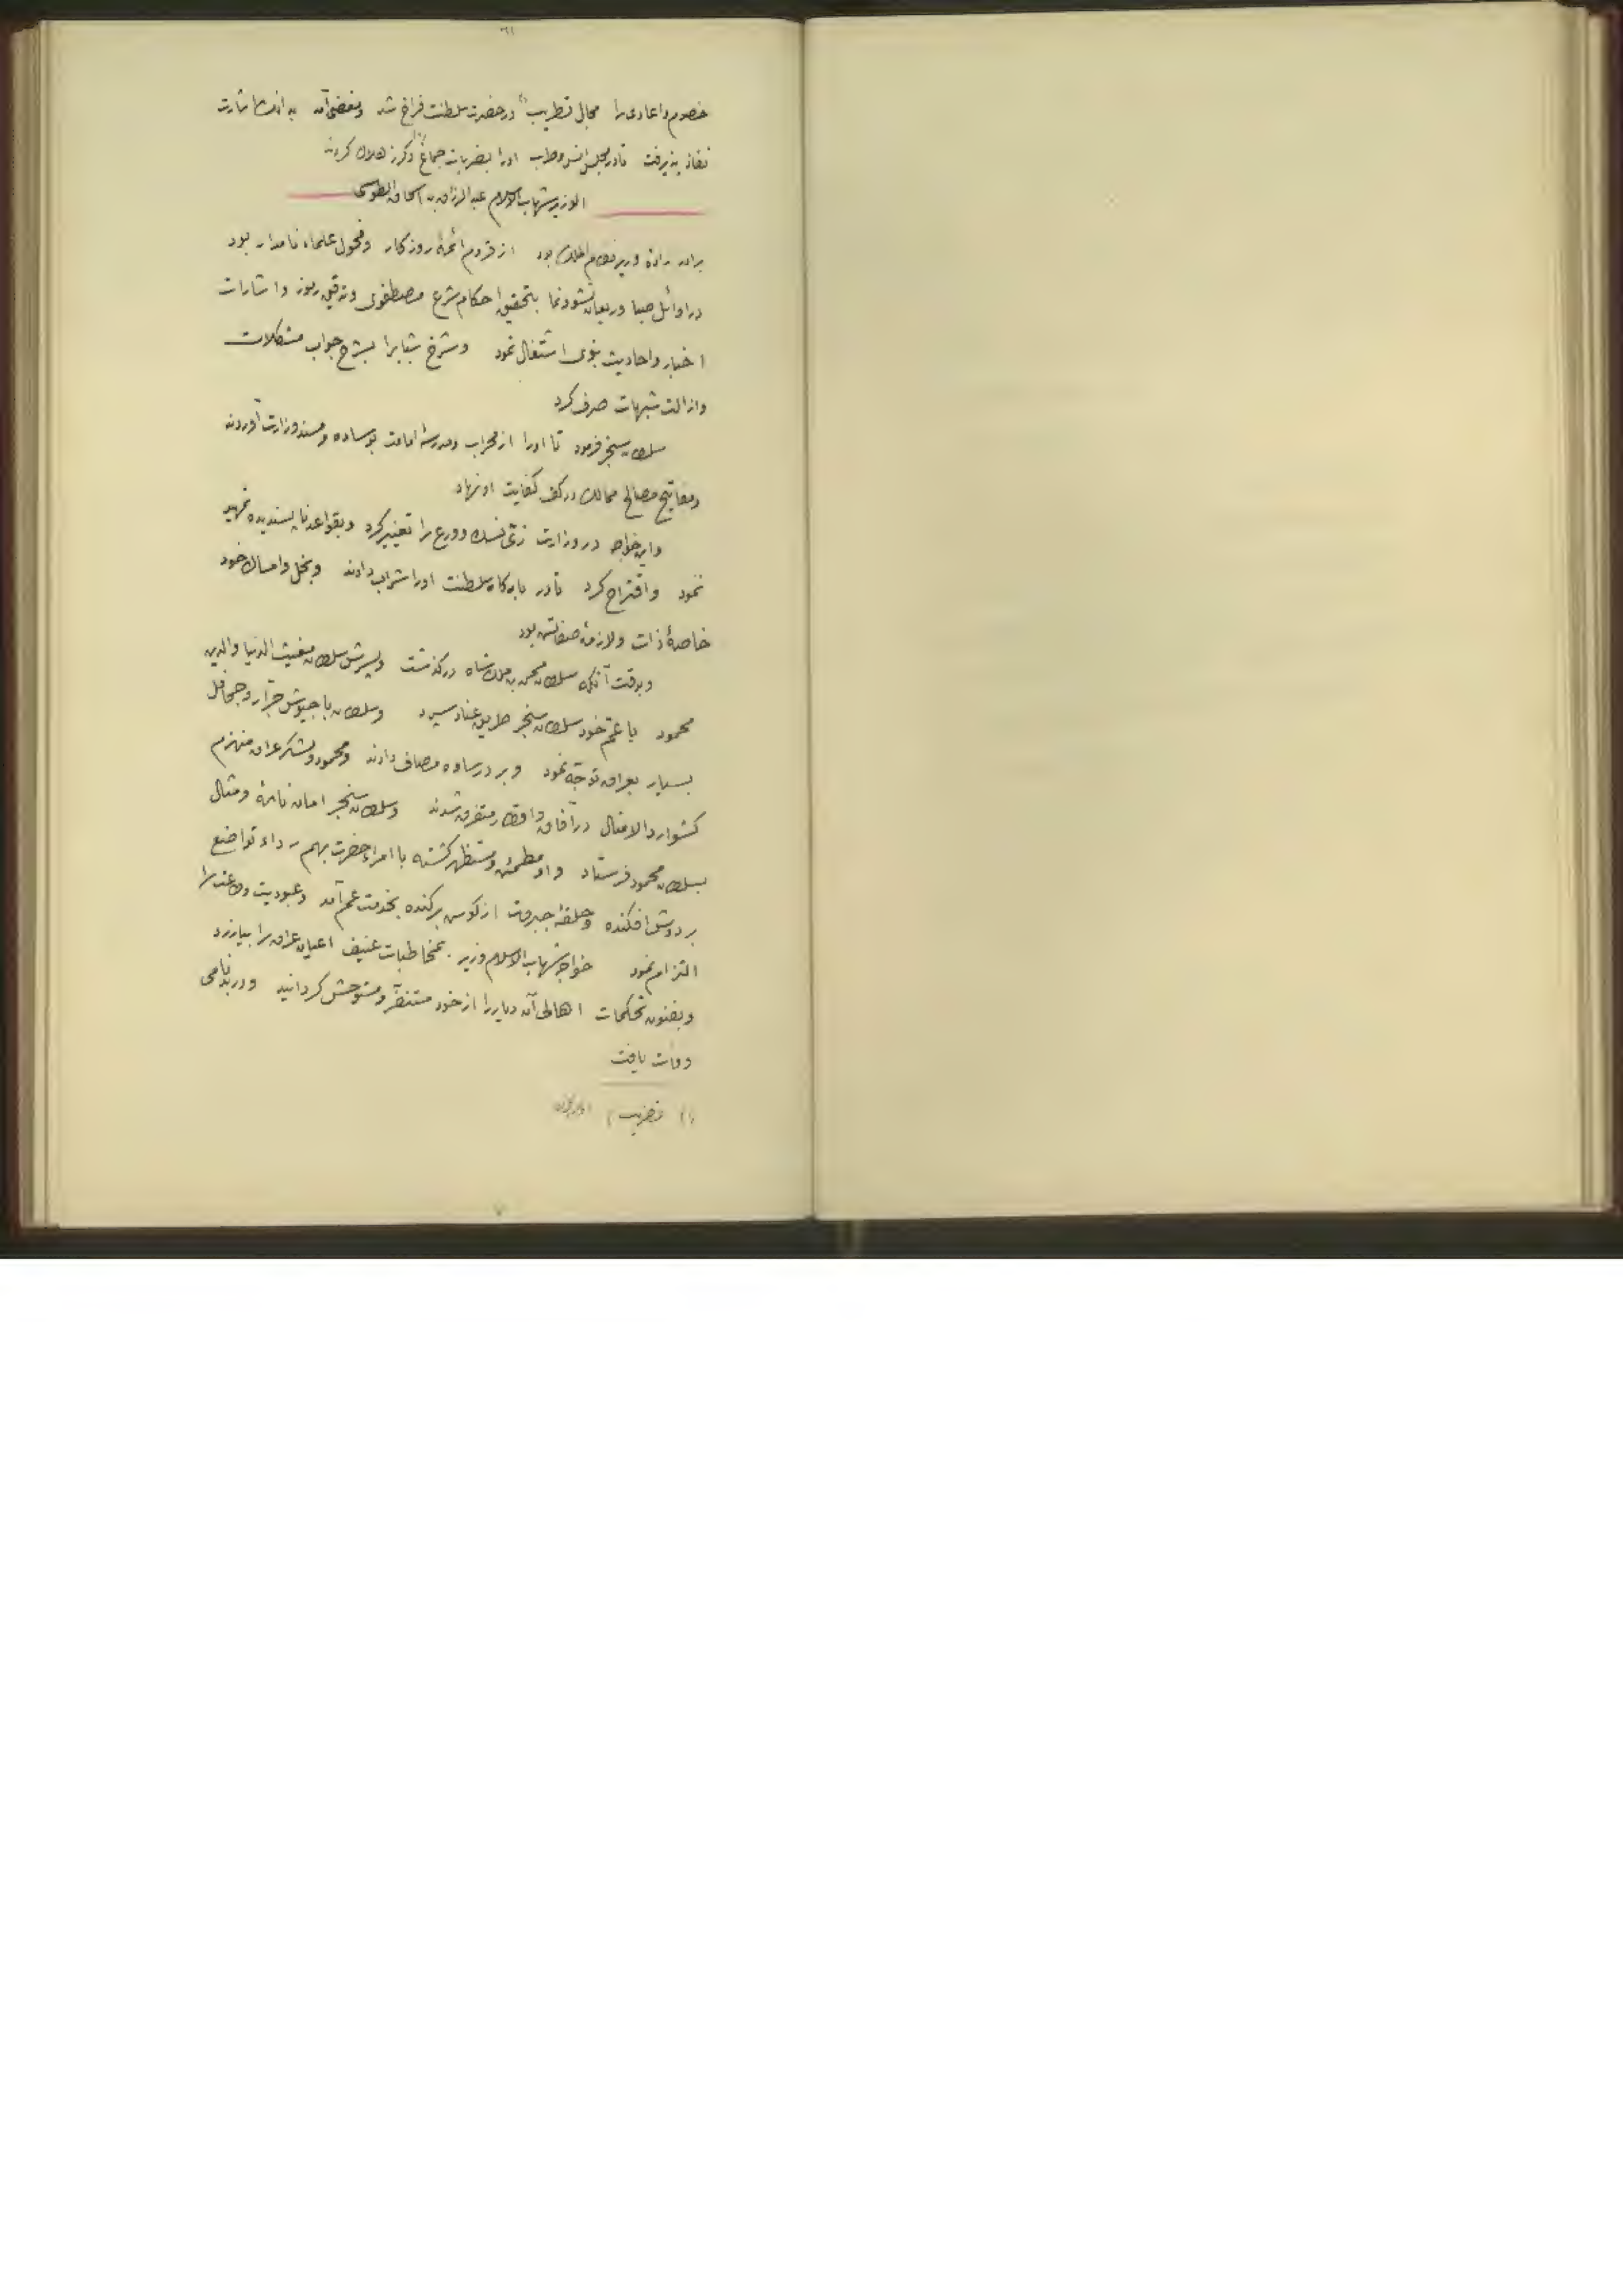 ٦١
خصوم و اعادی را مجال تطریب (١) در حضرت سلطنت فراخ شد و بعضی آن به اشارت
نفاذ پذیرفت تا در مجلس انس و طرب او را بضربات چماغ و کرز هلاک کردند
الوزیر شهاب الاسلام عبد الرزاق بن اسحاق الطوسی
برادر زادهٔ وزیر نظام الملک بود از قروم ائمهٔ روزکار و فحول علماء نامدار بود
در اوائل صبا و ریعان نشو و نما بتحقیق احکام شرع مصطفوی و تدقیق رموز و اشارات
اخبار و احادیث نبوی اشتغال نمود و شرخ شباب را بشرح جواب مشکلات
و ازالت شبهات صرف کرد
سلطان سنجر فرمود تا او را از محراب و مدرسهٔ امامت بوساده و مسند وزارت آوردند
و مفاتیح مصالح ممالک در کف کفایت او نهاد
و این خواجه در وزارت زیّ نسک و ورع را تغییر کرد و بقواعد ناپسندیده تمهید
نمود و اقتراح کرد تا در بارکاه سلطنت او را شراب دادند و بخل و امساک خود
خاصهٔ ذات و لازمهٔ صفاتش بود
و بوقت آنکه سلطان محمد بن ملک شاه درکذشت و پسرش سلطان مغیث الدنیا والدین
محمود با عمّ خود سلطان سنجر طریق عناد سپرد و سلطان با جیوش جرّار و جحافل
بسیار بعراق توجّه نمود و بر در ساوه مصاف دادند و محمود و لشکر عراق منهزم
کشوارد الامثال در آفاق و اقطار متفرق شدند و سلطان سنجر امان نامهٔ و مثال
بسلطان محمود فرستاد و او مطمئن و مستظهر کشته با امراء حضرت بهم رداء تواضع
بر دوش افکنده و حلقهٔ جبروت از کوس برکنده بخدمت عم آمد و عبودیت و طاعت را
التزام نمود خواجه شهاب الاسلام وزیر بمخاطبات عنیف اعیان عراق را بیازرد
و بفنون تحکمات اهالی آن دیار را از خود متنفّر و مستوحش کردانید و در بدنامی
وفات یافت
(١) تضریب